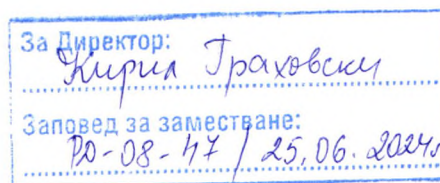 За Директор:
Кирил Граховски
Заповед за заместване:
РД-08-47 / 25.06.2024г